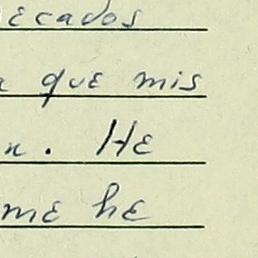 ecados
a que mis
n. HE
me he